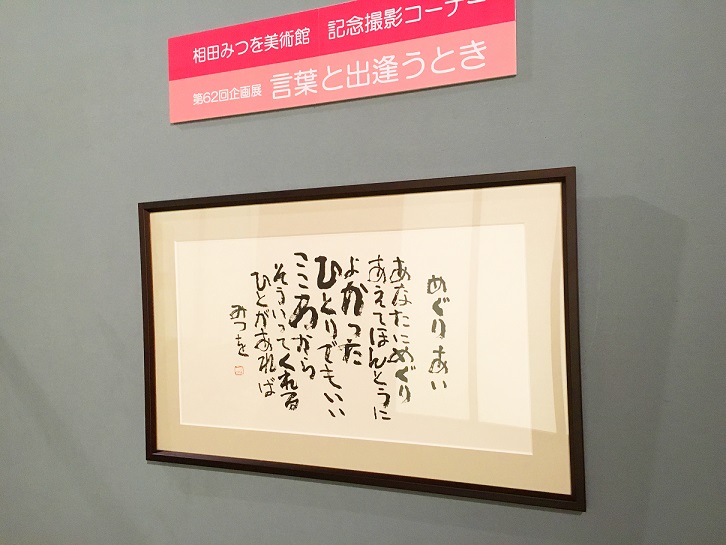 相田みつを美術館 記念撮影コーナー
第62回企画展 言葉と出逢うとき
めぐりあい
あなたにめぐり
あえてほんとうに
よかった
ひとりでもいい
こころから
そういってくれる
ひとがあれば
みつを